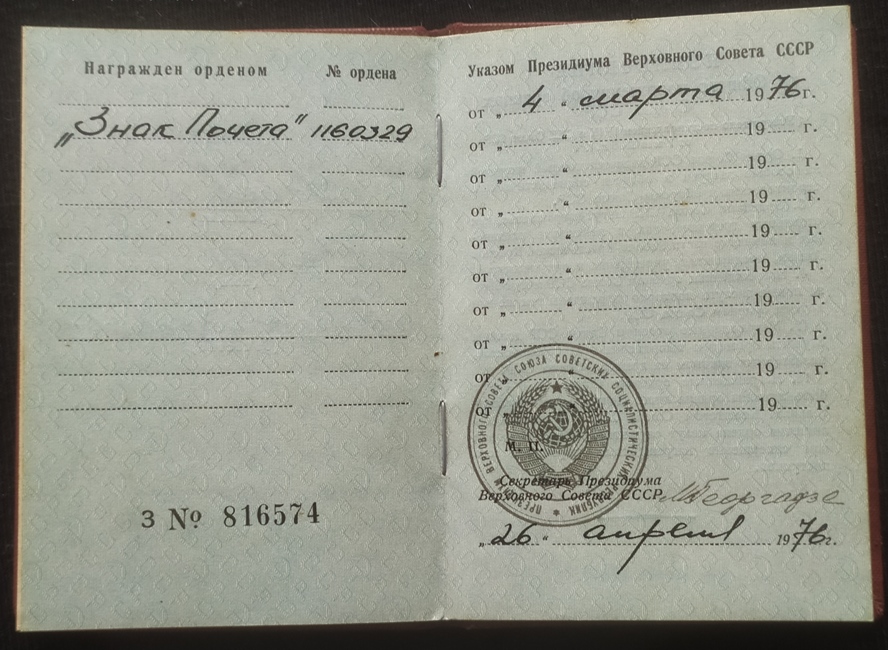 Награжден орденом № ордена
„Знак Почета“ 1160329
З № 816574
Указом Президиума Верховного Совета СССР
от „ 4 “ марта 1976 г.
от „ “ 19 г.
от „ “ 19 г.
от „ “ 19 г.
от „ “ 19 г.
от „ “ 19 г.
от „ “ 19 г.
от „ “ 19 г.
от „ “ 19 г.
от „ “ 19 г.
ПРЕЗИДИУМ ВЕРХОВНОГО СОВЕТА СОЮЗА СОВЕТСКИХ СОЦИАЛИСТИЧЕСКИХ РЕСПУБЛИК
М. П.
Секретарь Президиума
Верховного Совета СССР М Георгадзе
„ 26 “ апреля 1976 г.